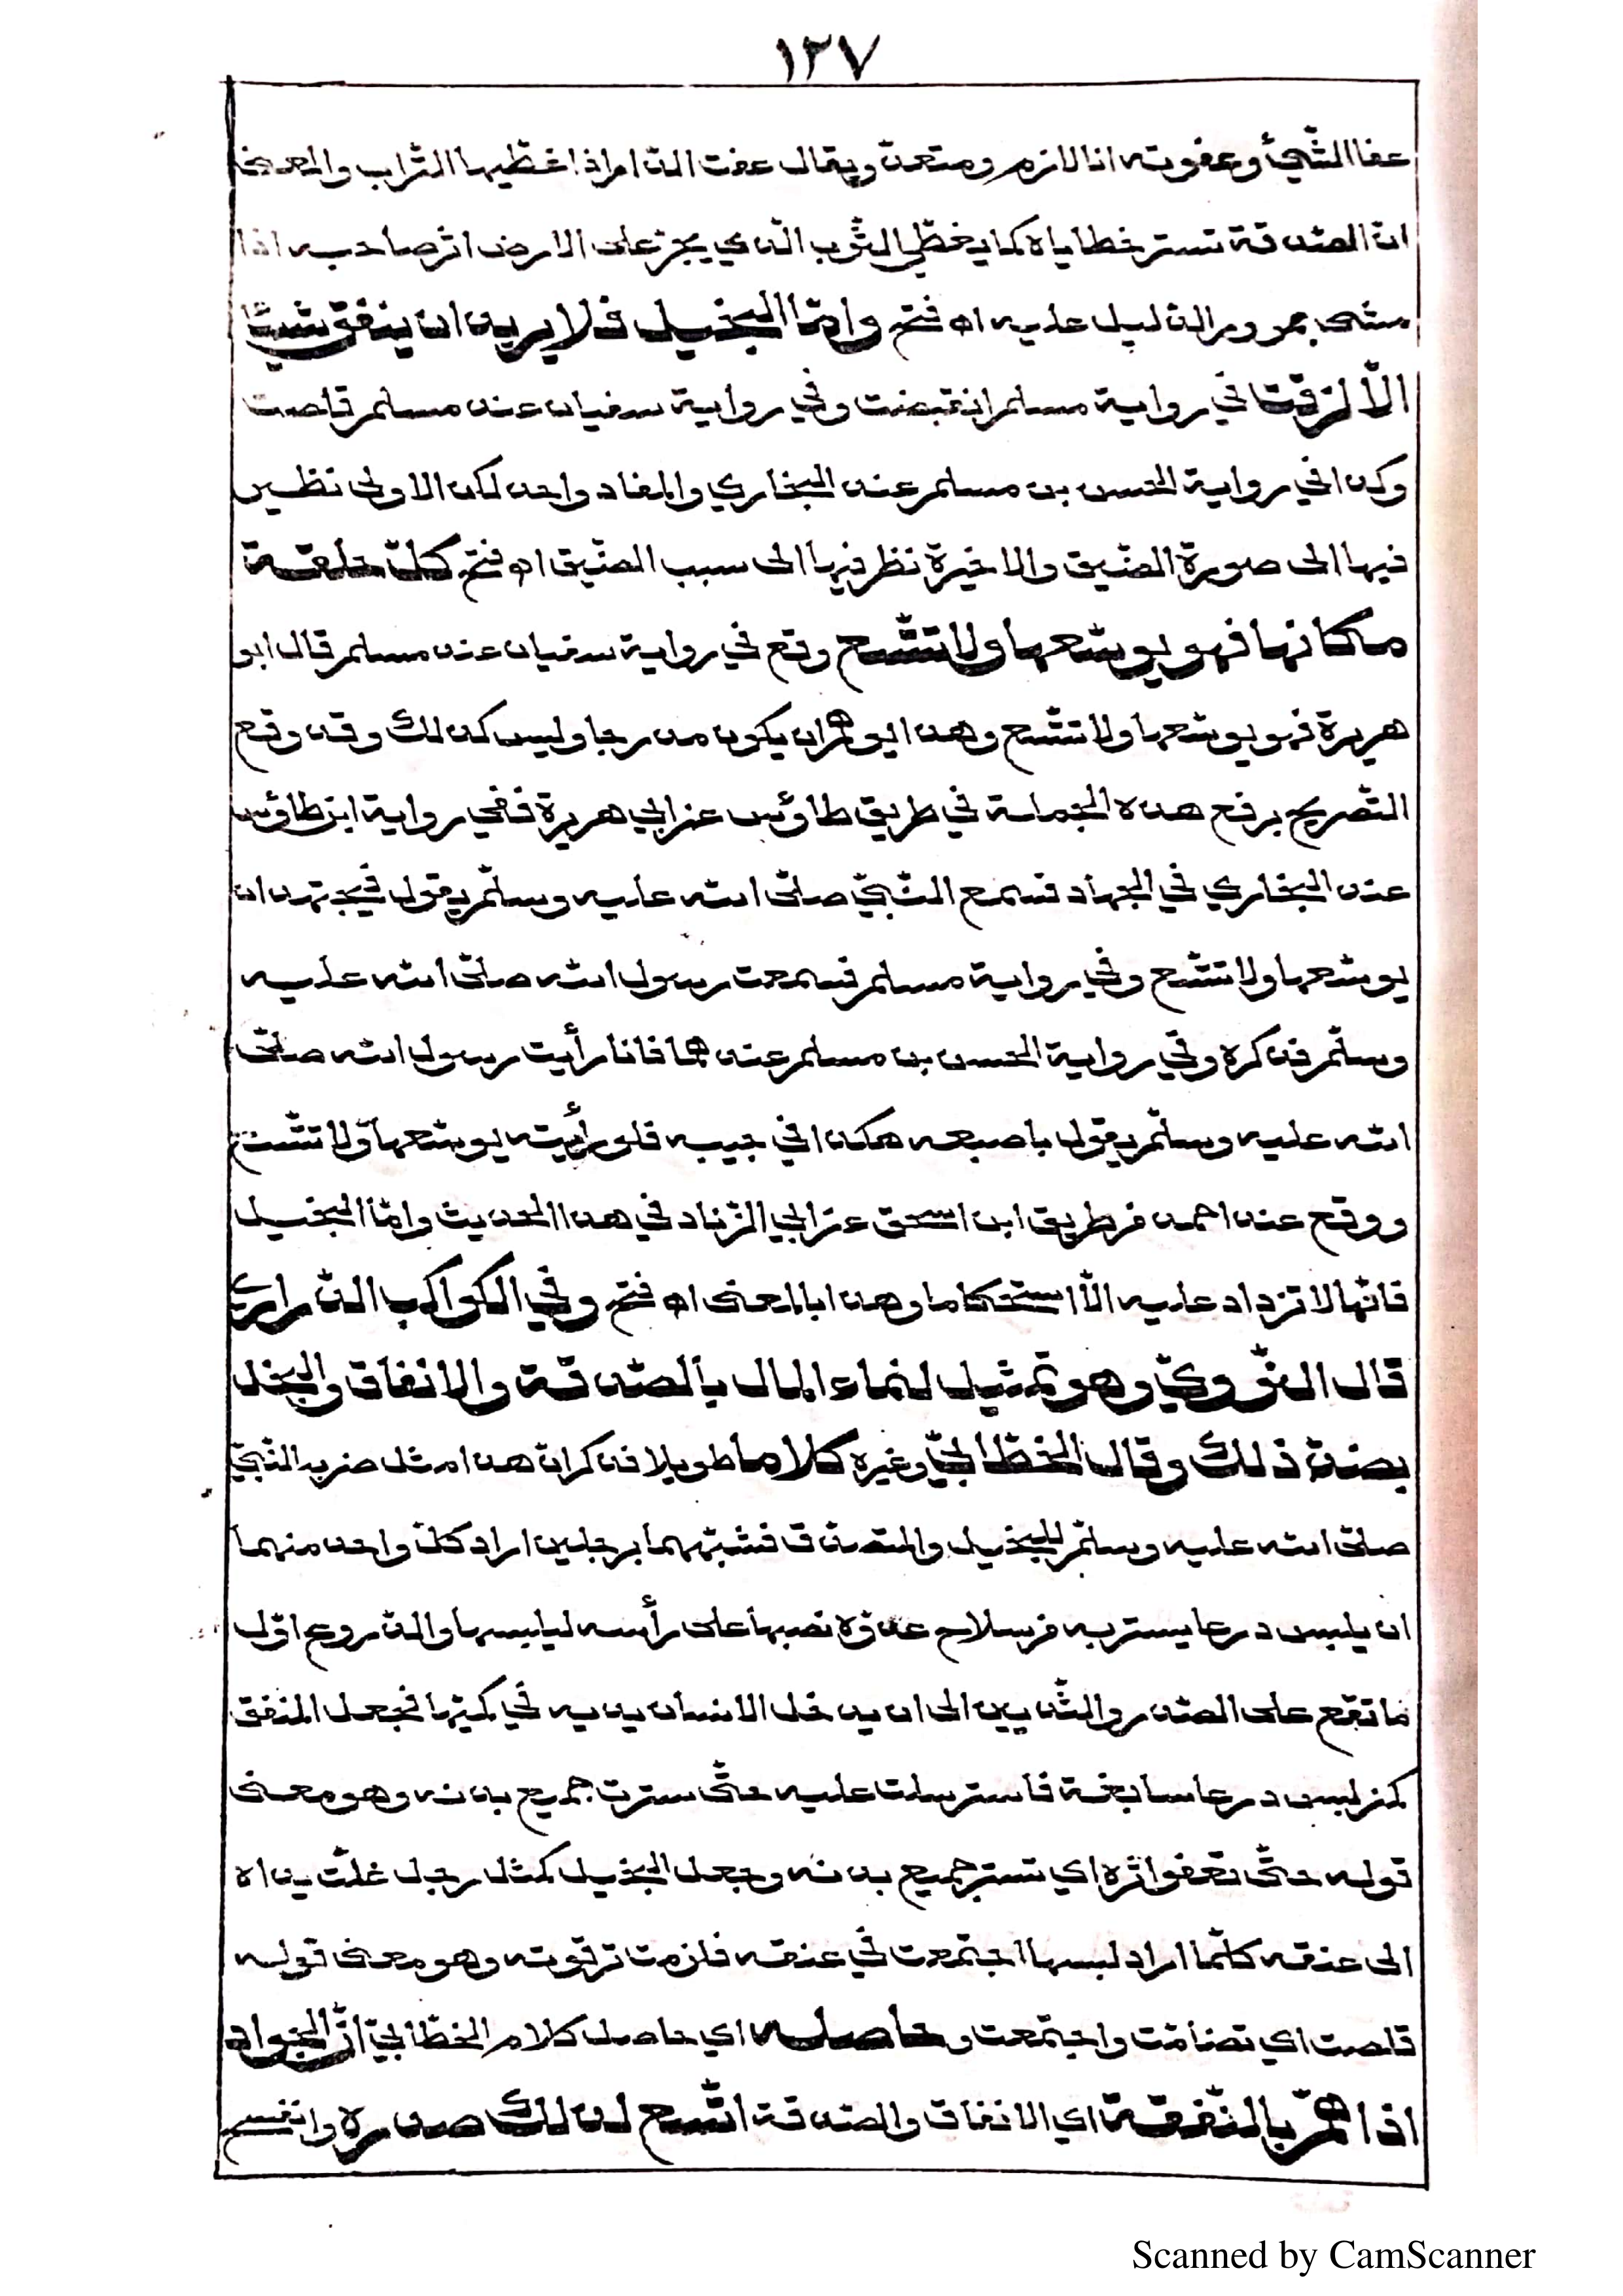 ١٢٧
عفا الشّيئ وعفوته انا لازم ومتعدّ ويقال عفت الدّار اذا غطّيها التّراب والمعنى
انّ الصّدقة تستر خطاياه كما يغطّي الثّوب الّذي يجرّ على الارض اثر صاحبه اذا
مشى بمرور الذّيل عليه اه فتح وامّا البخيل فلا يريد ان ينفق شيئًا
الّا لزقت في رواية مسلم انقبضت وفي رواية سفيان عند مسلم قلصت
وكذا في رواية الحسن بن مسلم عند البخاري والمفاد واحد لكن الاولى نظير
فيها الى صورة الضّيق والاخيرة نظر فيها الى سبب الضّيق اه فتح كلّ حلقة
مكانها فهو يوسّعها ولا تتّسع وقع في رواية سفيان عند مسلم قال ابو
هريرة فهو يوسّعها ولا تتّسع وهذا يوهم ان يكون مدرجا وليس كذلك وقد وقع
التّصريح برفع هذه الجملة في طريق طاؤس عن ابي هريرة ففي رواية ابن طاؤس
عند البخاري في الجهاد فسمع النّبيّ صلّى الله عليه وسلّم يقول فيجتهد ان
يوسّعها ولا تتّسع وفي رواية مسلم فسمعت رسول الله صلّى الله عليه
وسلّم فذكره وفي رواية الحسن بن مسلم عندهما فانا رأيت رسول الله صلّى
الله عليه وسلّم يقول باصبعه هكذا في جيبه فلو رأيته يوسّعها ولا تتّسع
ووقع عند احمد من طريق ابن اسحق عن ابي الزّناد في هذا الحديث وامّا البخيل
فانّها لا تزداد عليه الّا استحكاما وهذا بالمعنى اه فتح وفي الكواكب الدّراري
قال النّوويّ وهو تمثيل لنماء المال بالصّدقة والانفاق والبخل
بضدّ ذلك وقال الخطّابيّ وغيره كلاما طويلا فذكر انّ هذا مثل ضربه النّبيّ
صلّى الله عليه وسلّم للبخيل والمتصدّق فشبّههما برجلين اراد كلّ واحد منهما
ان يلبس درعا يستر به من سلاح عدوّه نصبها على رأسه ليلبسها والدّروع اوّل
ما تقع على الصّدر والثّديين الى ان يدخل الانسان يديه في كمّيها فجعل المنفق
كمن لبس درعا سابغة فاسترسلت عليه حتّى سترت جميع بدنه وهو معنى
قوله حتّى تعفو اثره اي تستر جميع بدنه وجعل البخيل كمثل رجل غلّت يداه
الى عنقه كلّما اراد لبسها اجتمعت في عنقه فلزمت ترقوته وهو معنى قوله
قلصت اي تضامّت واجتمعت وحاصله اي حاصل كلام الخطّابيّ انّ الجواد
اذا همّ بالنّفقة اي الانفاق والصّدقة اتّسع لذلك صدره وانفسح
Scanned by CamScanner